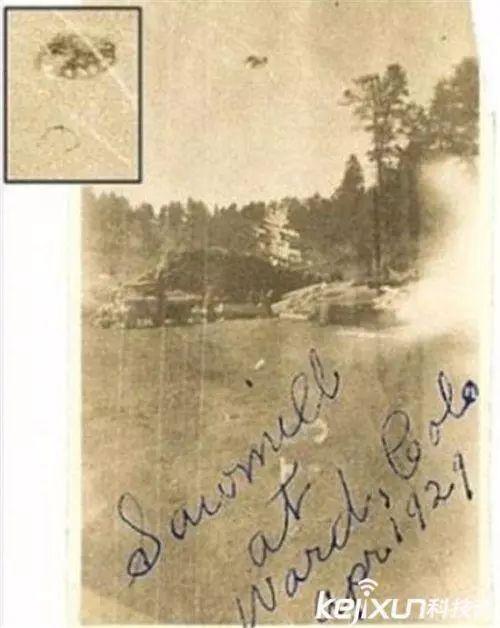 Sawmill
at
Ward, Colo
Apr 1929
kejixun科技讯